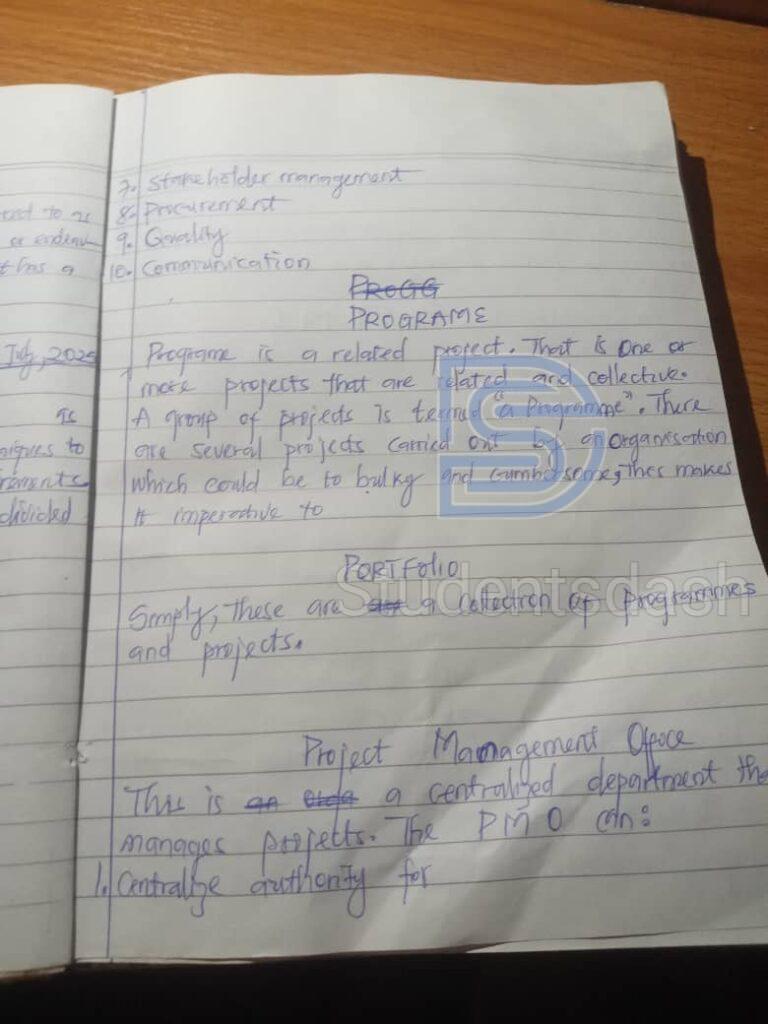 7. Stakeholder management
8. Procurement
9. Quality
10. Communication
PROGG
PROGRAME
Programe is a related project. That is one or
more projects that are related and collective.
A group of projects is termed "a Programme". There
are several projects carried out by an organisation
which could be to bulky and cumbersome, this makes
it imperative to
PORTFOLIO
Simply, these are a collection of programmes
and projects.
Project Management Office
This is an a centralized department tha
manages projects. The PMO can:
1. Centralize authority for
July, 202
is
niques to
rements
divided
Studentsdash